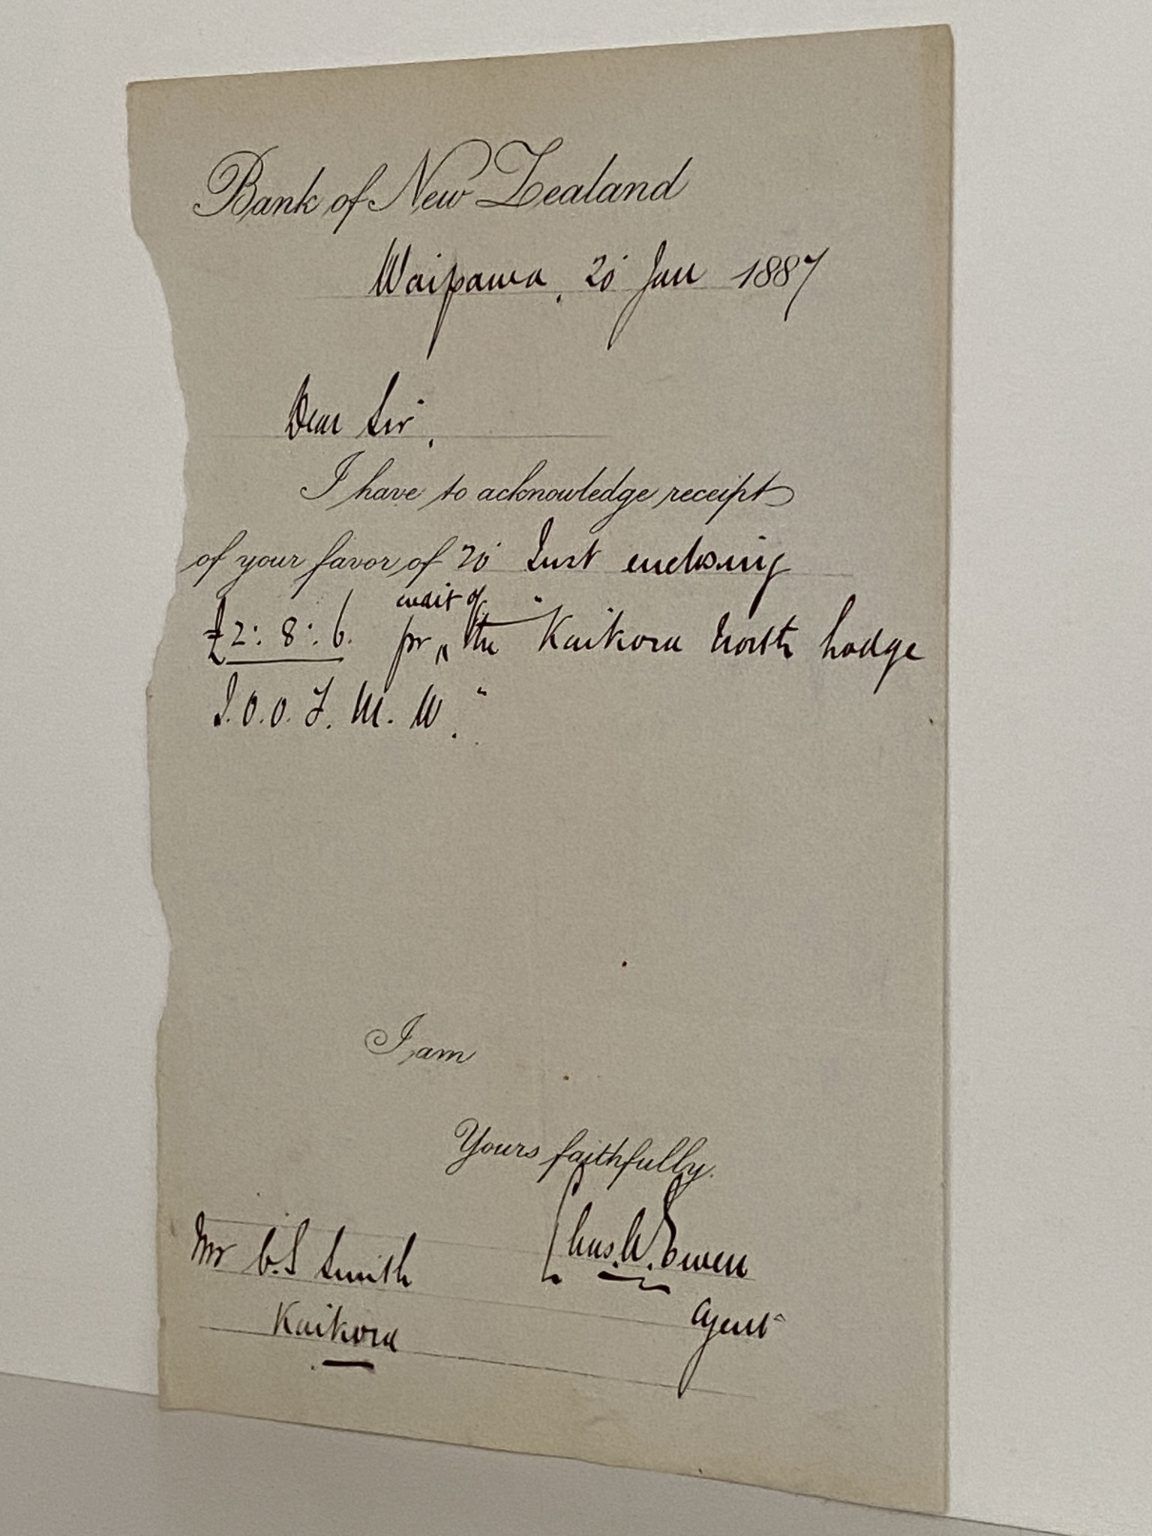 Bank of New Zealand
Waipawa, 20 Jan 1887
Dear Sir,
I have to acknowledge receipt
of your favor of 20 Inst enclosing
credit of
£2:8:6. pr ^ the "Kaikora North Lodge
I.O.O.F. M. W."
I am
Yours faithfully.
Mr C. S Smith
Chas. W. Owen
Kaikora
Agent